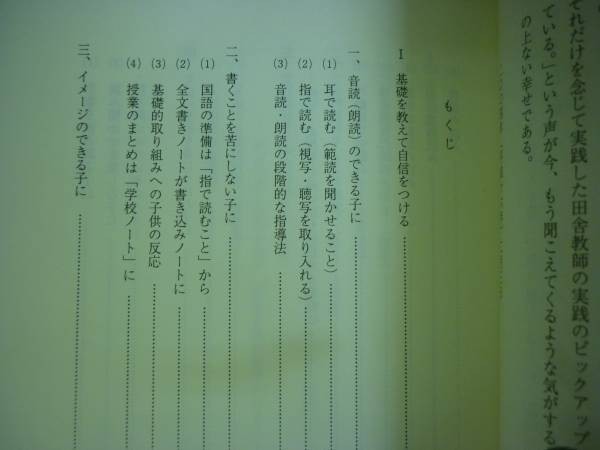 それだけを念じて実践した田舎教師の実践のピックアップ
ている。」という声が今、もう聞こえてくるような気がする
の上ない幸せである。
もくじ
Ⅰ 基礎を教えて自信をつける
一、音読(朗読)のできる子に
(1) 耳で読む(範読を聞かせること)
(2) 指で読む(視写・聴写を取り入れる)
(3) 音読・朗読の段階的な指導法
二、書くことを苦にしない子に
(1) 国語の準備は「指で読むこと」から
(2) 全文書きノートが書き込みノートに
(3) 基礎的取り組みへの子供の反応
(4) 授業のまとめは「学校ノート」に
三、イメージのできる子に